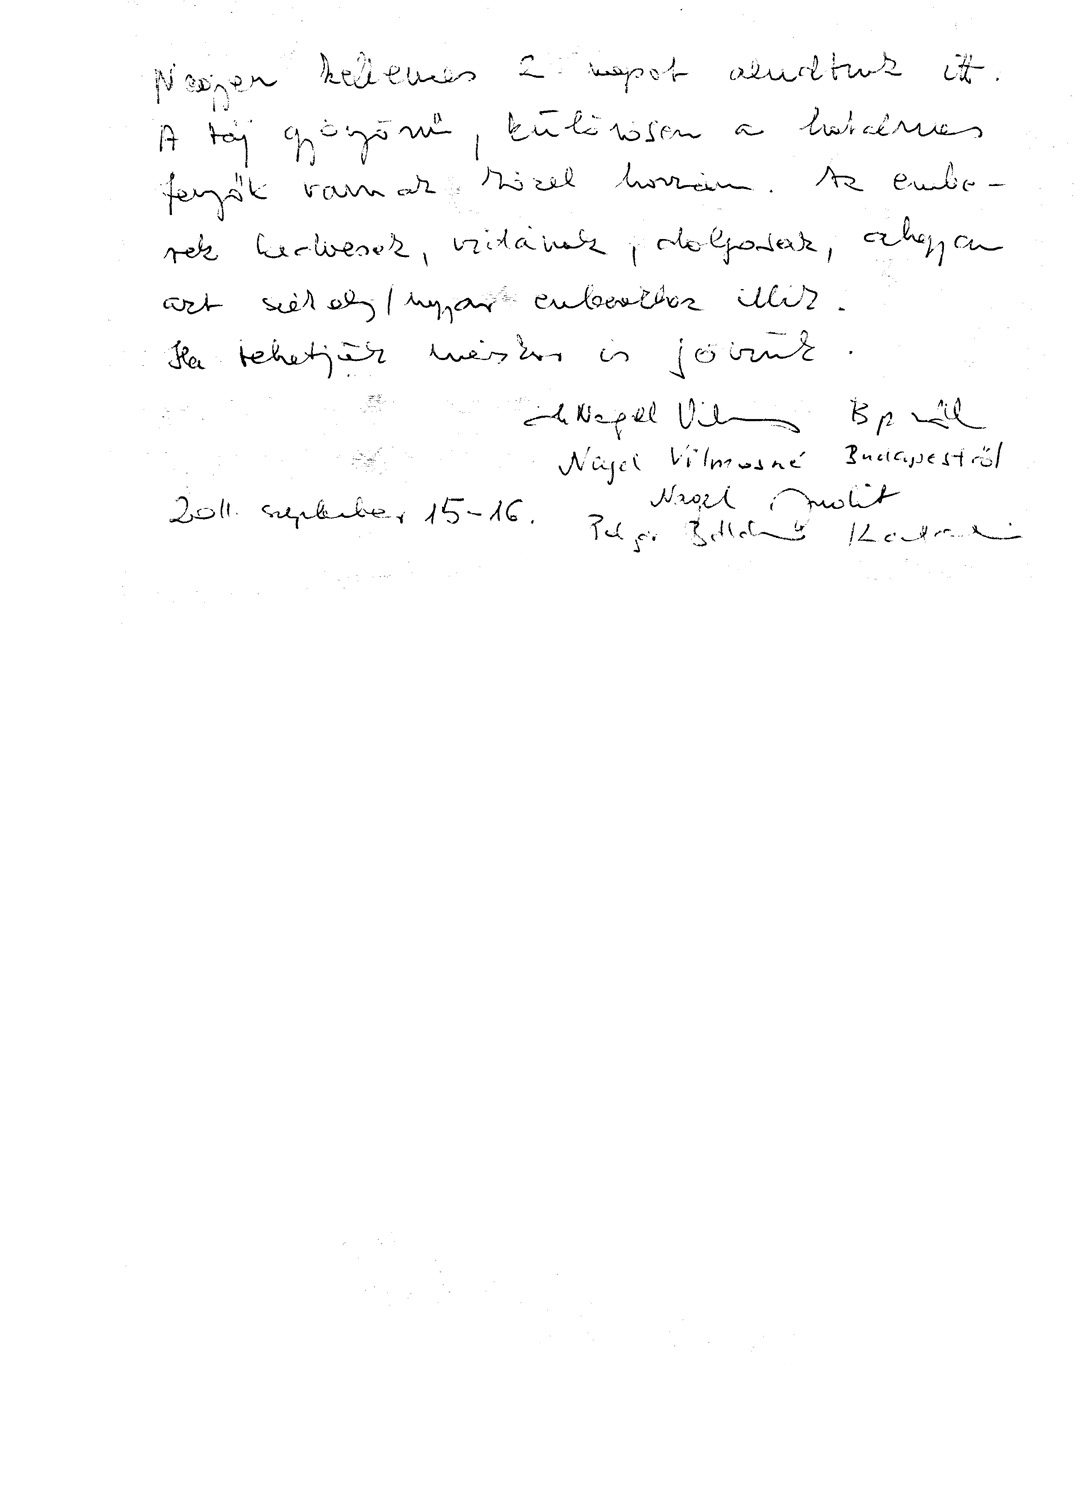 Nagyon kellemes 2 napot aludtunk itt.
A táj gyönyörű, különösen a hatalmas
fenyők vannak közel hozzám. Az embe-
rek kedvesek, vidámak, dolgosak, ahogyan
azt székely/magyar emberekhez illik.
Ha tehetjük máskor is jövünk.
Nagel Vilmos Bp ről
Nagel Vilmosné Budapestről
Nagel Judit
2011. szeptember 15-16.